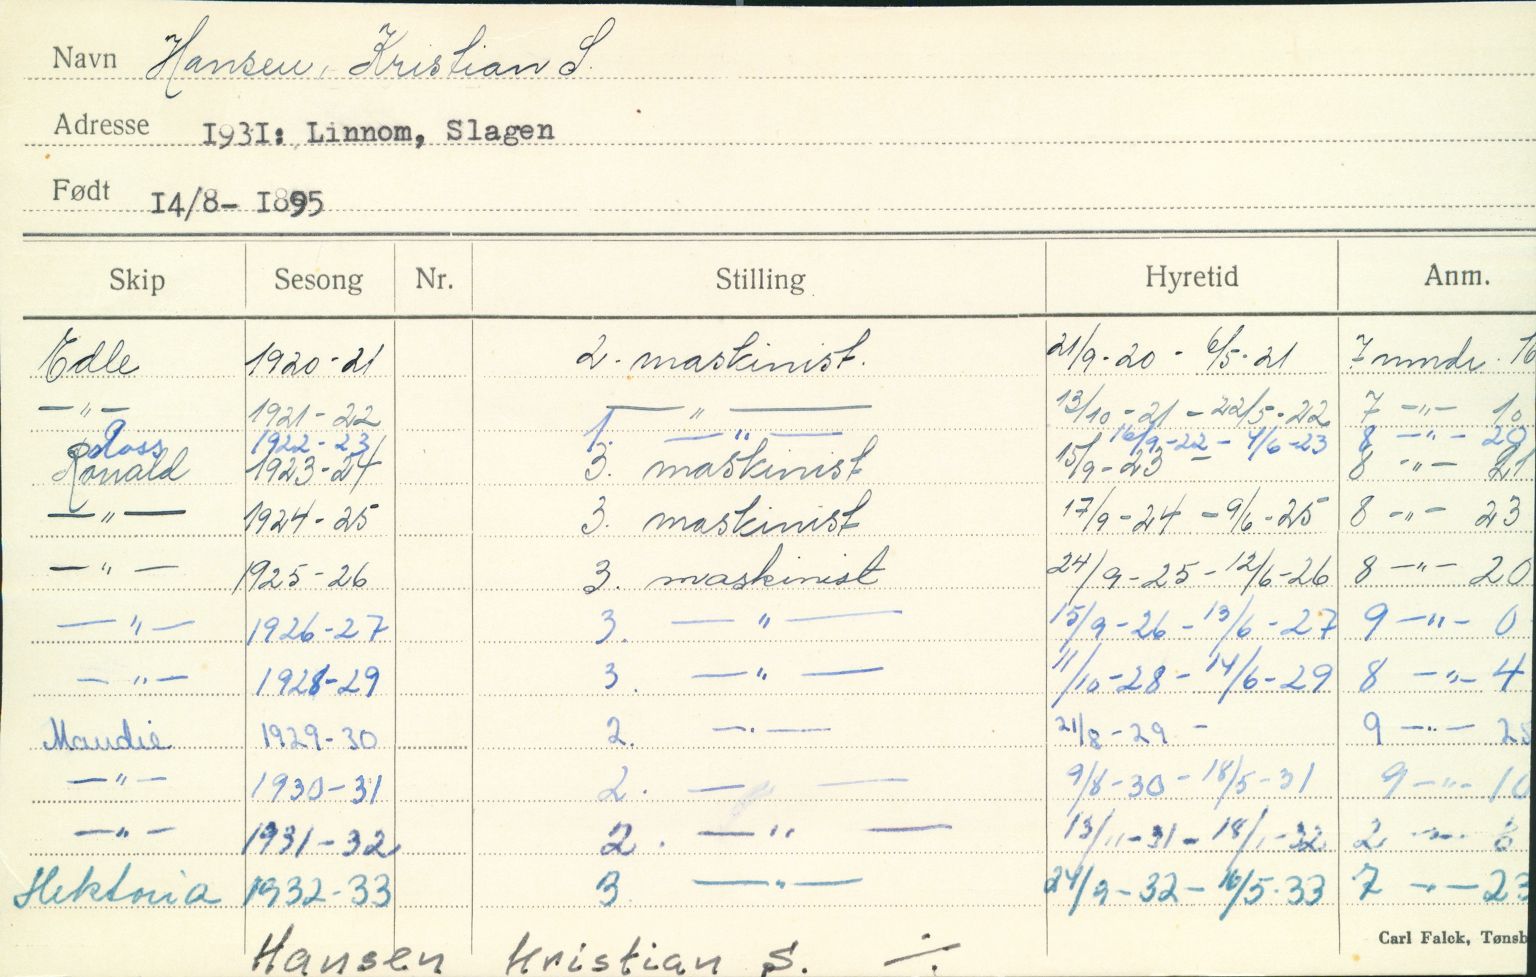 Navn Hansen, Kristian S.
Adresse 1931: Linnom, Slagen
Født 14/8- 1895
Skip Sesong Nr. Stilling Hyretid Anm.
Edle 1920-21 2. maskinist. 21/9-20 - 6/5-21 7 mndr. 16
—"— 1921-22 —"— 13/10-21 - 22/5-22 7 —"— 10
Ross 1922-23 1. —"— 16/9-22 - 4/6-23 8 —"— 20
Ronald 1923-24 3. maskinist 15/9-23 - 8 —"— 21
—"— 1924-25 3. maskinist 17/9-24 - 9/6-25 8 —"— 23
—"— 1925-26 3. maskinist 24/9-25 - 12/6-26 8 —"— 20
—"— 1926-27 3. —"— 15/9-26 - 13/6-27 9 —"— 0
—"— 1928-29 3. —"— 11/10-28 - 14/6-29 8 —"— 4
Maudie 1929-30 2. —"— 21/8-29 - 9 —"— 28
—"— 1930-31 2. —"— 9/8-30 - 18/5-31 9 —"— 10
—"— 1931-32 2. —"— 13/11-31 - 18/1-32 2 —"— 6
Hektoria 1932-33 3 —"— 24/9-32 - 16/5-33 7 —"— 23
Carl Falck, Tønsb
Hansen Kristian S. ÷